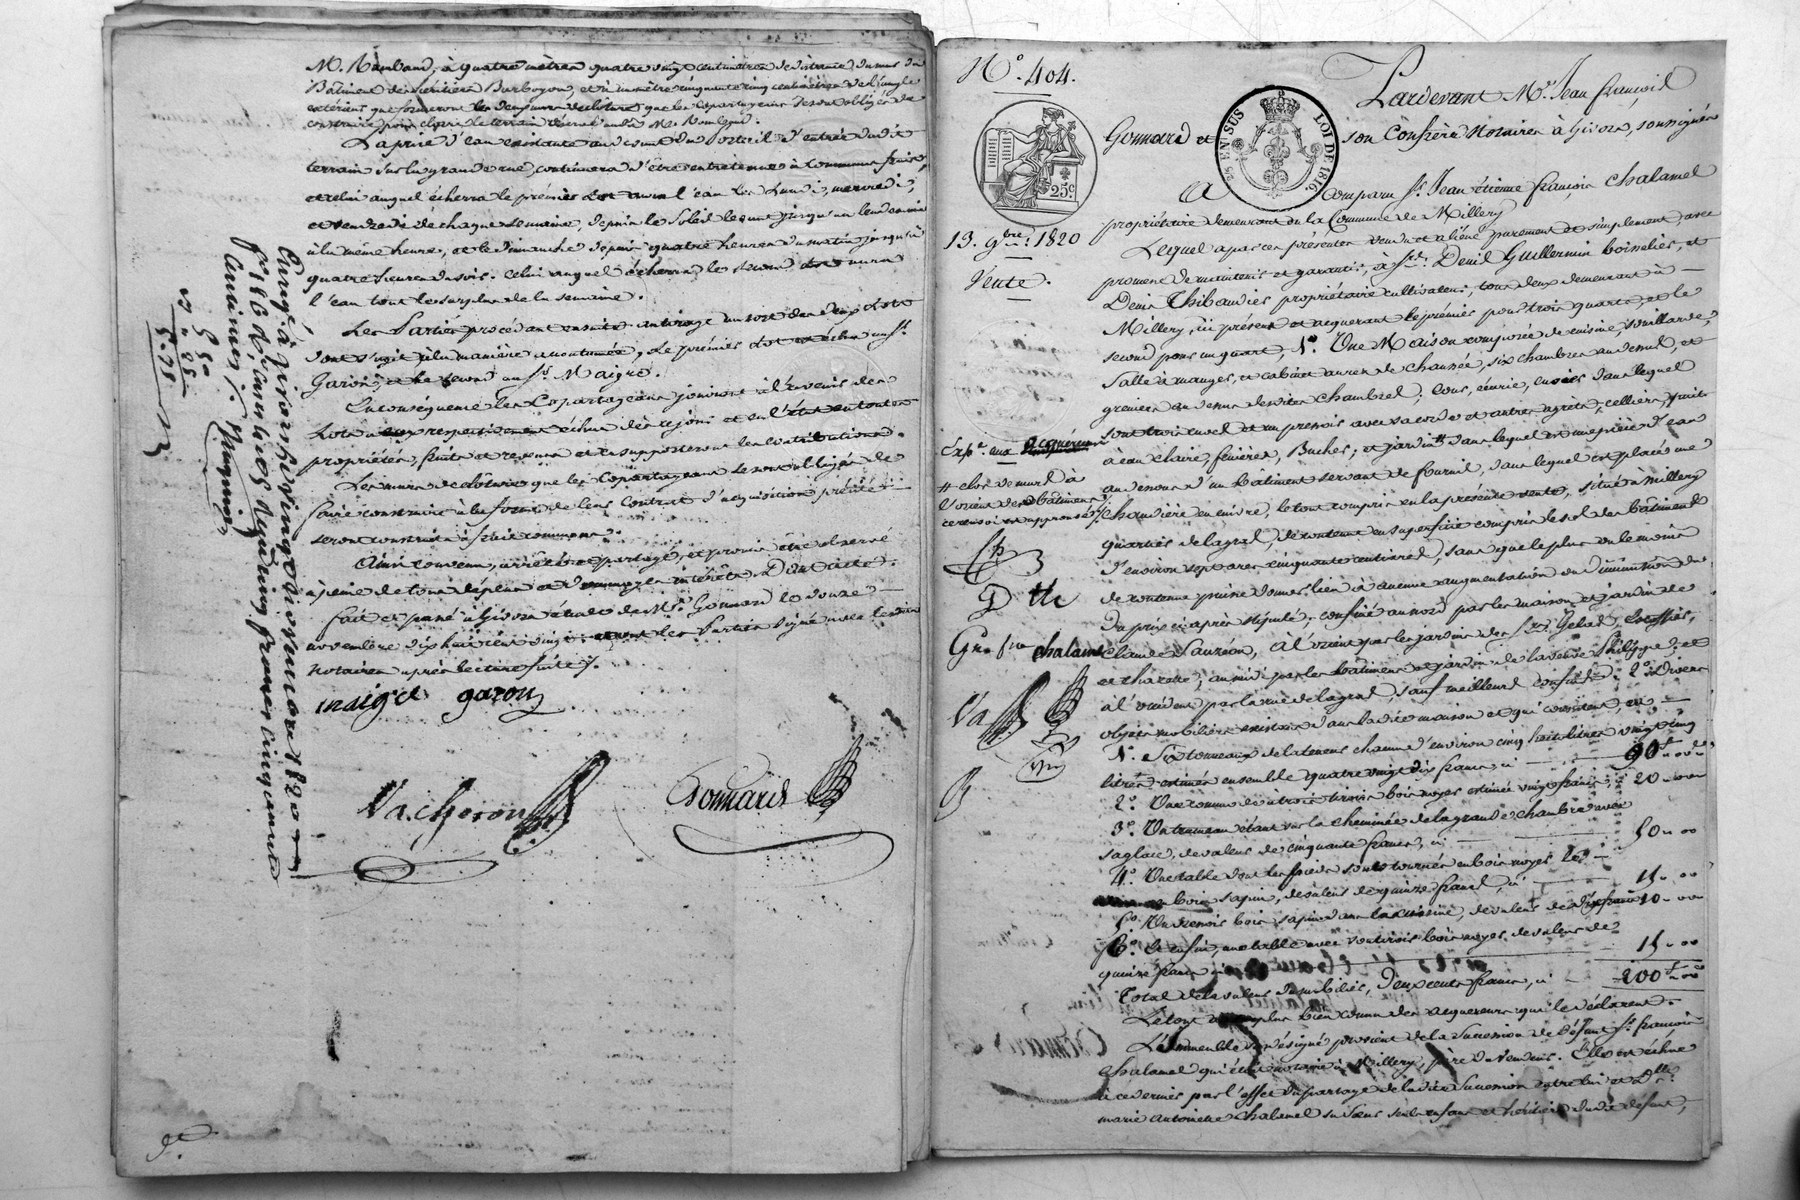 M. Rambaud, à quatre mètres quatre vingt centimètres de distance du mur du
Bâtiment des héritiers Burboyon, et à un mètre cinquante cinq centimètres de l'angle
extérieur que formeront les deux murs de clôture que les Copartageans seront obligés de
construire pour clorre le terrain
La prise d'eau existante au du portail d'entrée dudit
terrain sur la grande rue, continuera d'être entretenue à communs frais,
et celui auquel écherra le premier lot aura l'eau les Lundi, mercredi,
et vendredi de chaque semaine, depuis le Soleil levant jusqu'au lendemain
à la même heure, et le Dimanche depuis quatre heures du matin jusqu'à
quatre heures du soir. Celui auquel écherra le second lot aura
l'eau tout le surplus de la semaine.
Les Parties procédant ensuite au tirage au sort des deux lots
dont s'agit, à la manière accoutumée, le premier lot est échu au Sr.
Garon, et le second au Sr. Maigre.
En conséquence les Copartageans jouiront à l'avenir des
Lots à eux respectivement échus dès ce jour et en toutes
propriétés, fruits et revenus et en supporteront les contributions.
Les murs de clôture que les Copartageans seront obligés de
faire construire à la forme de leur Contrat d'acquisition précité
seront construits à frais communs.
Ainsi convenu, arrêté et partagé, et promis être observé
à peine de tous dépens et dommages intérêts. Dont acte.
Fait et passé à Givors étude de Me. Gonnard le douze
novembre dix huit cent vingt et ont les Parties signé avec les dits
Notaires après lecture faite.
maigre garon
Vacheron Gonnard
Enregé à Givors le vingt dix novembre 1820
f° 186 Ro. cases 4 et 5 Reçu cinq francs cinquante
centimes.
5 50
55
N° 404.
13. 9bre. 1820
Vente.
25 EN SUS
LOI DE 1816
25c.
Pardevant Me. Jean François
Gonnard et son Confrère Notaires à Givors, soussignés
A Comparu Sr. Jean étienne François Chalamel
propriétaire demeurant en la Commune de Millery
Lequel a par ces présentes vendu et aliéné purement et simplement, avec
promesse de maintenir et garantir, à Srs. Denis Guillermin boisselier, et
Denis Thibaudier propriétaire cultivateur, tous deux demeurant à
Millery, ici présents et acquérant le premier pour trois quarts et le
second pour un quart, 1°. Une Maison composée de cuisine, souillarde,
Salle à manger, et cabinet au rez de chaussée, six chambres au dessus, et
greniers au dessus desdites chambres; Cour, écurie, cuvier dans lequel
sont trois cuves et un pressoir avec sa corde et autres agrès, cellier, puits
à eau claire, fenières, Bucher; et jardin # dans lequel est une pièce d'eau
au dessous d'un Bâtiment servant de fournil, dans lequel est placée une
Chaudière en cuivre, le tout compris en la présente vente, situé à Millery
quartier de la grad, de contenue en superficie compris le sol des Bâtimens
d'environ sept ares cinquante centiares, sans que le plus ou le moins
de contenue puisse donner lieu à aucune augmentation ou diminution du
du prix ci après stipulé; confiné au nord par les maison et jardin de
Claude Lauréon, à l'orient par les jardins des Srs. Gelas,
et Charette; au midi par les bâtimens et jardin de la veuve Philippe; et
à l'occident par la rue de la grad, sauf meilleurs confins. 2°. Divers
objets mobiliers existans dans ladite maison et qui consistent, en
1°. Six tonneaux de la teneur chacun d'environ cinq hectolitres vingt cinq
litres estimés ensemble quatre vingt dix francs, ci 90f. 00c.
2°. Une commode à trois tiroirs bois noyer estimée vingt francs, 20 00
3°. Un trumeau étant sur la cheminée de la grande chambre avec
sa glace, de valeur de cinquante francs, ci 50 00
4°. Une table dont les pieds sont tournés en bois noyer et
en bois sapin, de valeur de quinze francs, ci 15 00
5°. Un bois sapin dans la cuisine, de valeur de dix francs 10 00
6°. Et enfin, une table avec son tiroir bois noyer de valeur de
quinze francs ci 15 00
Total de la valeur du mobilier, deux cents francs, ci 200f. 00
Le tout plus bien connu des acquéreurs que le déclarent.
L'immeuble sus désigné provient de la Succession de défunt Sr. François
Chalamel qui était notaire à Millery, père du Vendeur. Elle est échue
à ce dernier par l'effet du partage de ladite Succession entre lui et Dlle.
marie antoinette Chalamel sa Sœur seuls enfans et héritiers dudit défunt,
Expn. aux acquéreurs
# clos de murs à
l'orient desd. bâtimens
ce renvoi est approuvé
D th
Gn fr chalamel
Va